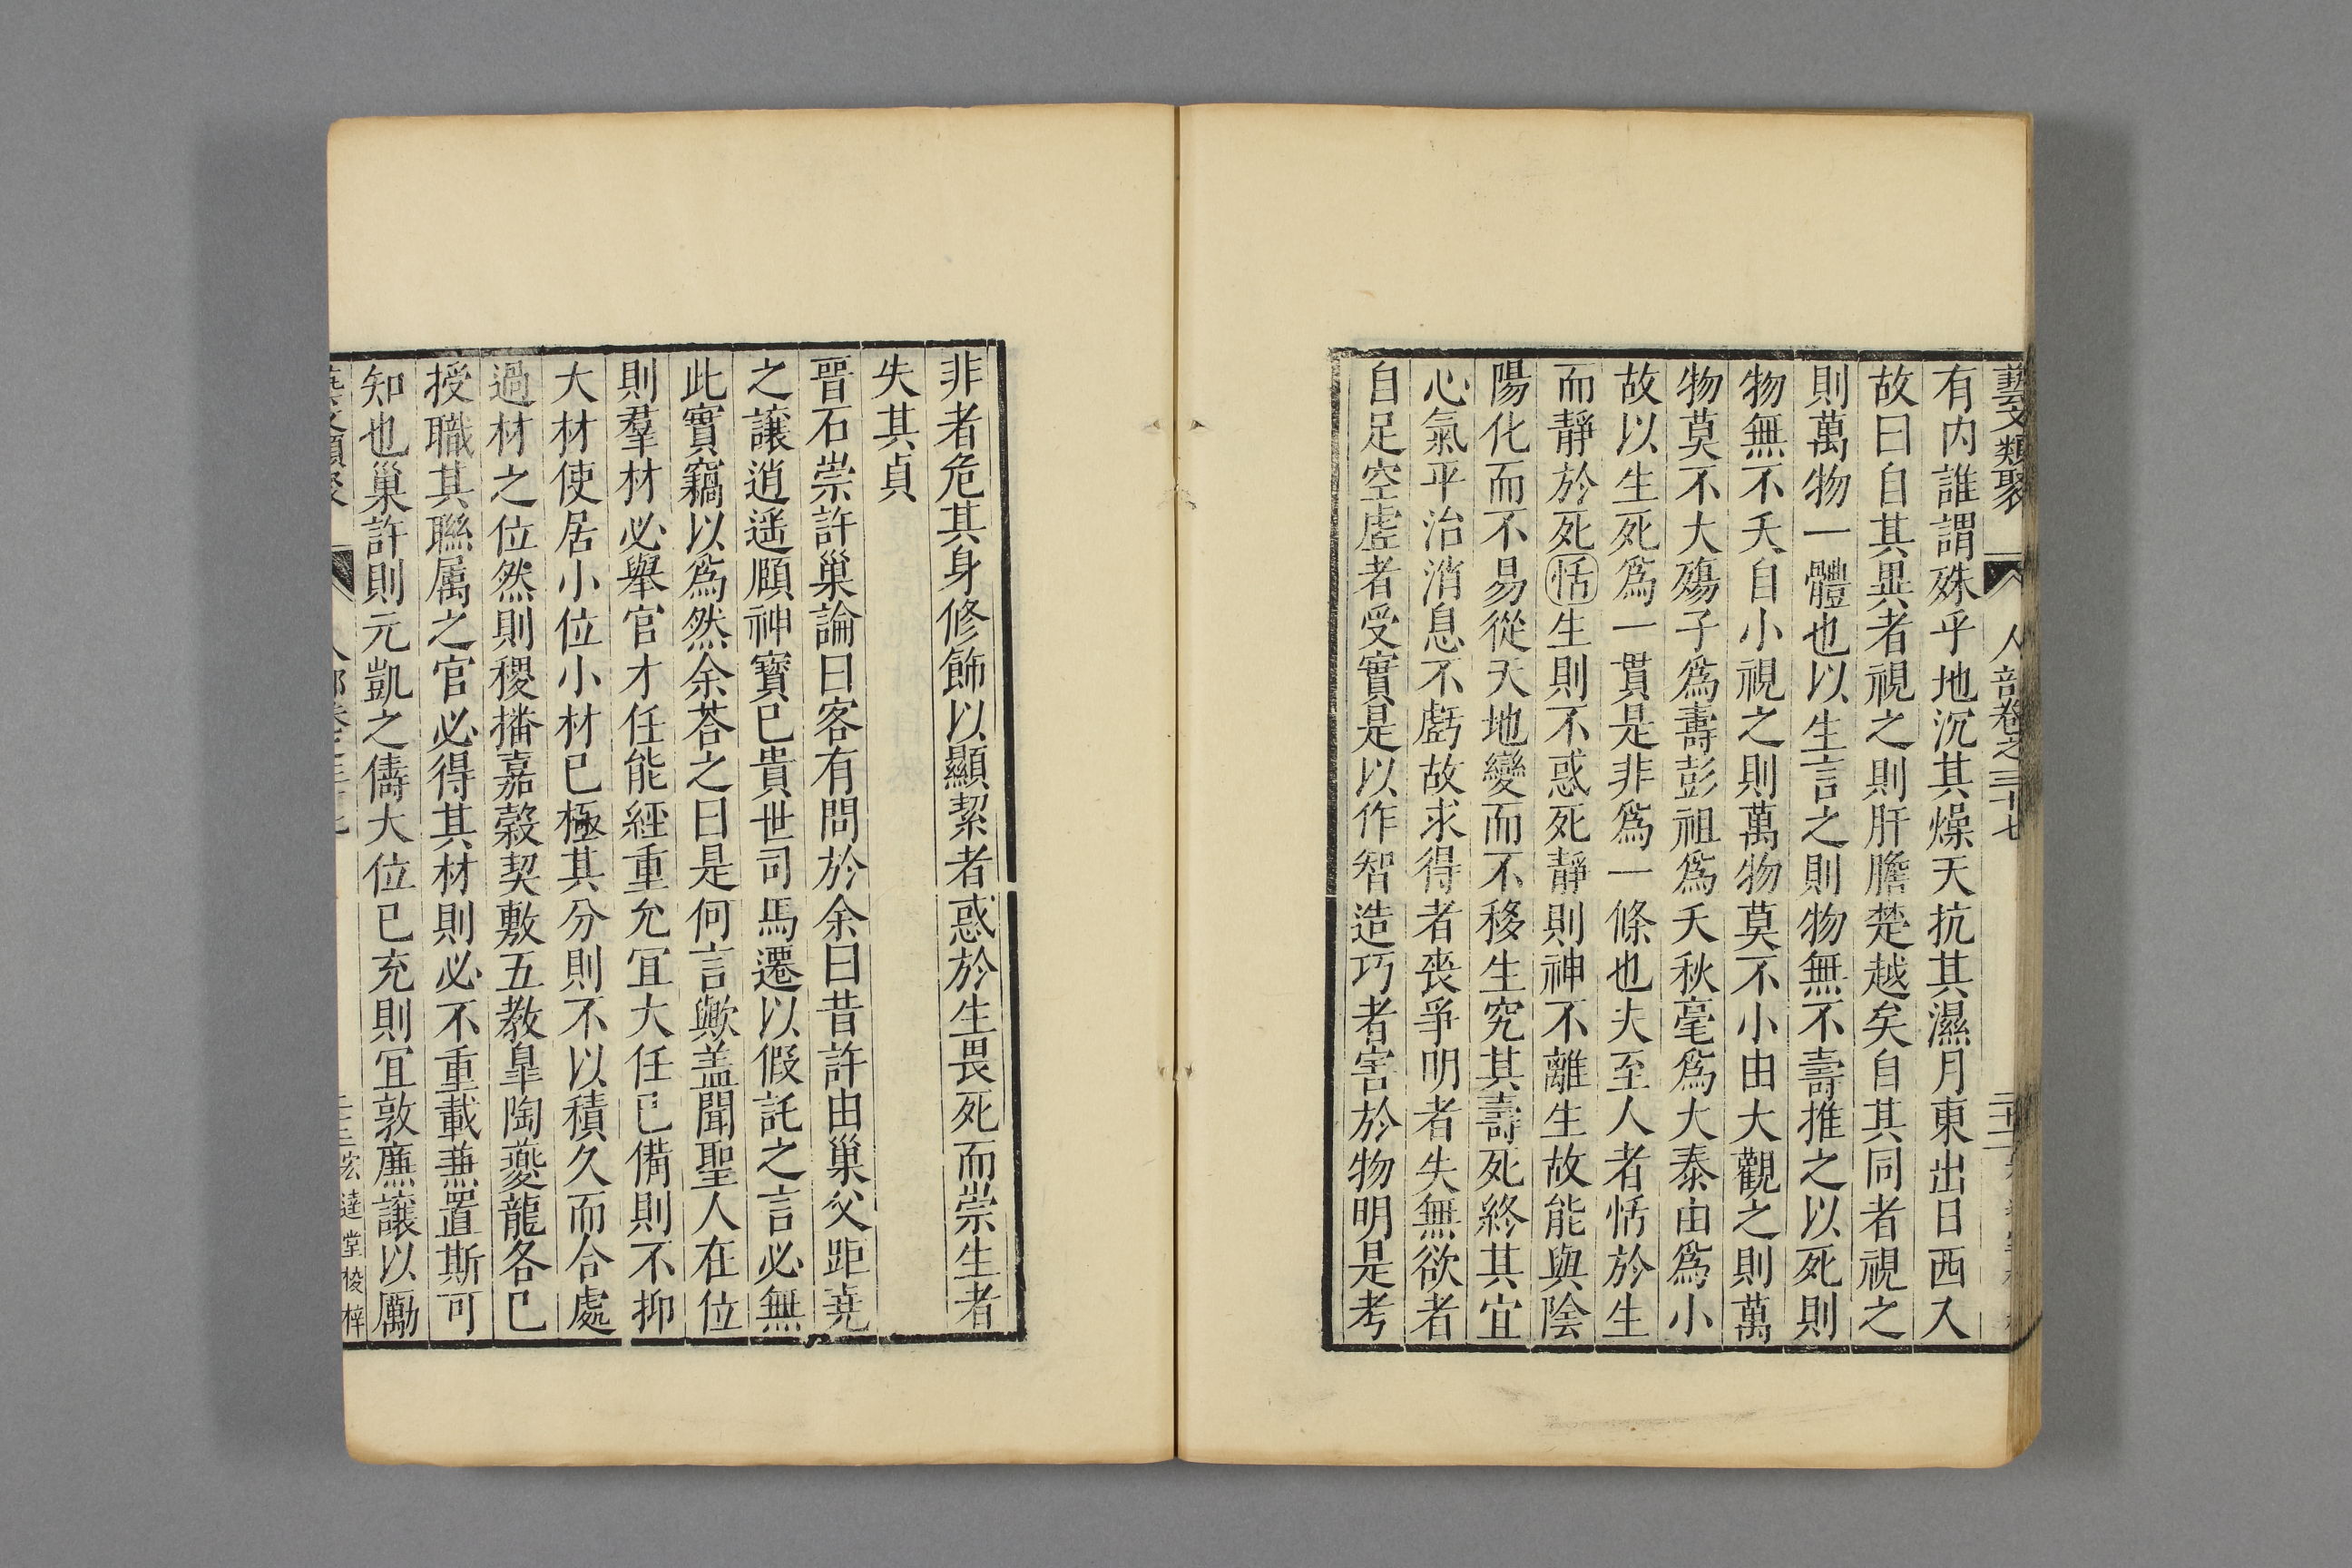 藝文類聚 人部卷之三十七
有内誰謂殊乎地沉其燥天抗其濕月東出日西入
故曰自其異者視之則肝膽楚越矣自其同者視之
則萬物一體也以生言之則物無不壽推之以死則
物無不夭自小視之則萬物莫不小由大觀之則萬
物莫不大殤子爲壽彭祖爲夭秋毫爲大泰由爲小
故以生死爲一貫是非爲一條也夫至人者恬於生
而靜於死恬生則不惑死靜則神不離生故能與陰
陽化而不易從天地變而不移生究其壽死終其宜
心氣平治消息不虧故求得者喪爭明者失無欲者
自足空虛者受實是以作智造巧者害於物明是考
非者危其身修飾以顯絜者惑於生畏死而崇生者
失其貞
晉石崇許巢論曰客有問於余曰昔許由巢父距堯
之讓逍遥頤神寳已貴世司馬遷以假託之言必無
此實竊以爲然余荅之曰是何言歟盖聞聖人在位
則羣材必舉官才任能經重允冝大任已備則不抑
大材使居小位小材已極其分則不以積久而合處
過材之位然則稷播嘉榖契敷五教臯陶夔龍各已
授職其聯属之官必得其材則必不重載兼置斯可
知也巢許則元凱之儔大位已充則冝敦廉讓以勵
宏達堂梭梓